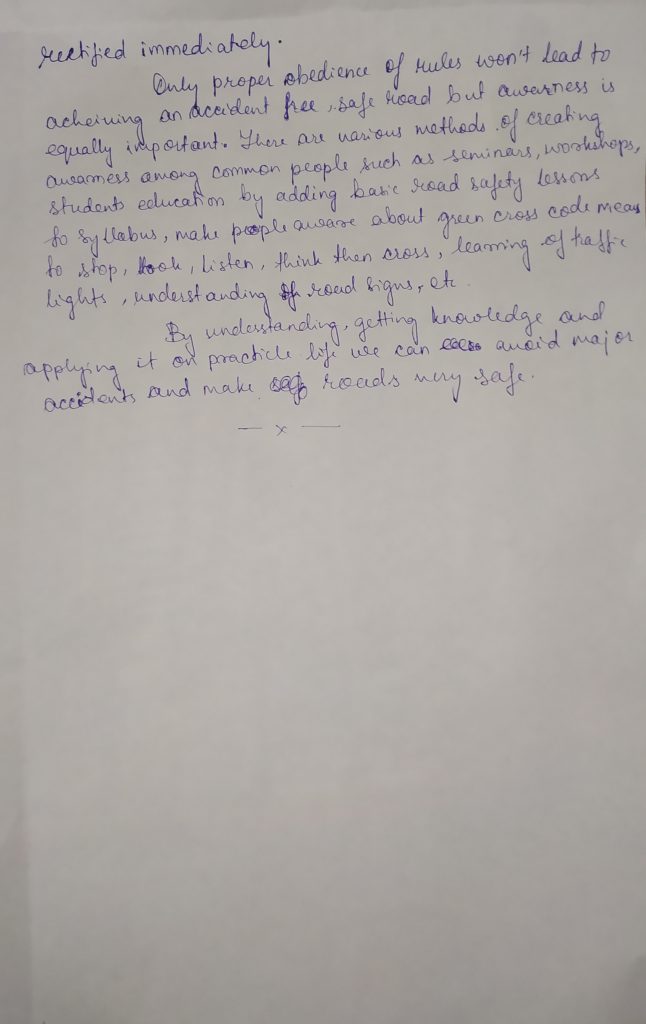 rectified immediately.
Only proper obedience of rules won't lead to
acheiving an accident free, safe road but awarness is
equally important. There are various methods of creating
awarness among common people such as seminars, workshops,
students education by adding basic road safety lessons
to syllabus, make people aware about green cross code means
to stop, look, listen, think then cross, learning of traffic
lights, understanding of road signs, etc.
By understanding, getting knowledge and
applying it on practicle life we can avoid major
accidents and make roads very safe.
— x —